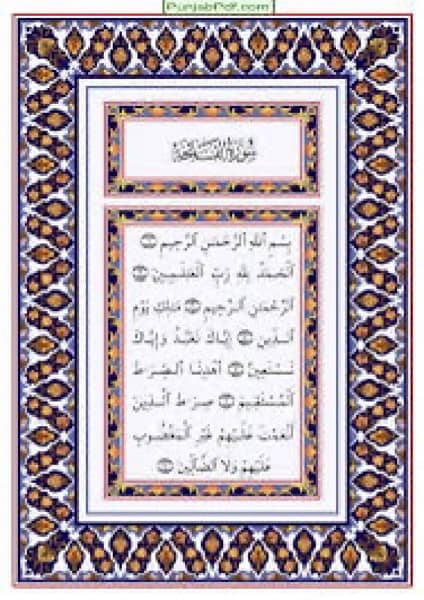 PunjabPdf.com
سُورَةُ الفَاتِحَةِ
بِسْمِ ٱللَّهِ ٱلرَّحْمَٰنِ ٱلرَّحِيمِ ۝
ٱلْحَمْدُ لِلَّهِ رَبِّ ٱلْعَٰلَمِينَ ۝
ٱلرَّحْمَٰنِ ٱلرَّحِيمِ ۝ مَٰلِكِ يَوْمِ
ٱلدِّينِ ۝ إِيَّاكَ نَعْبُدُ وَإِيَّاكَ
نَسْتَعِينُ ۝ ٱهْدِنَا ٱلصِّرَٰطَ
ٱلْمُسْتَقِيمَ ۝ صِرَٰطَ ٱلَّذِينَ
أَنْعَمْتَ عَلَيْهِمْ غَيْرِ ٱلْمَغْضُوبِ
عَلَيْهِمْ وَلَا ٱلضَّآلِّينَ ۝